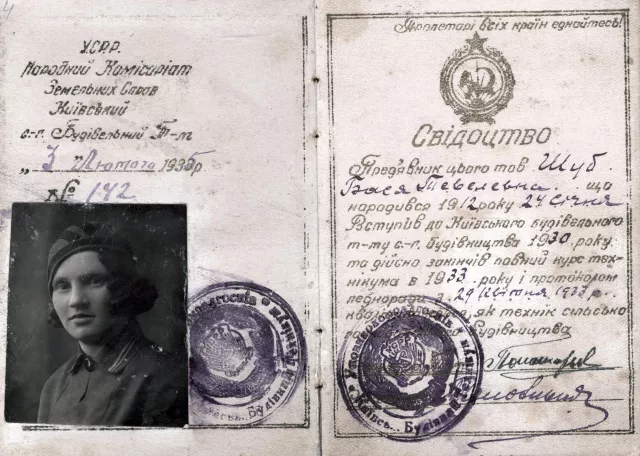 У.С.Р.Р.
Народний Комісаріат
Земельних Справ
Київський
с.-г. Будівельний Т-м
"3" Лютого 1935р
№ 142
Пролетарі всіх країн єднайтесь!
Свідоцтво
Пред'явник цього тов Шуб
Бася Тевелевна що
народився 1912 року 24 січня
Вступив до Київського будівельного
т-му с.-г. будівництва 1930 року
та дійсно закінчів повний курс тех-
нікума в 1933 року і протоколом
педнаради з 29 квітня 1933 р.
як технік сільсько
будівництва